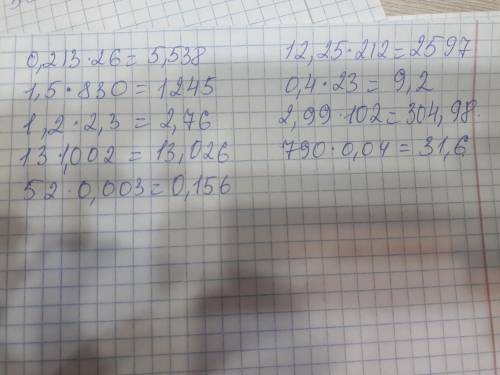 0,213·26=5,538
1,5·830=1245
1,2·2,3=2,76
13·1,002=13,026
52·0,003=0,156
12,25·212=2597
0,4·23=9,2
2,99·102=304,98.
790·0,04=31,6